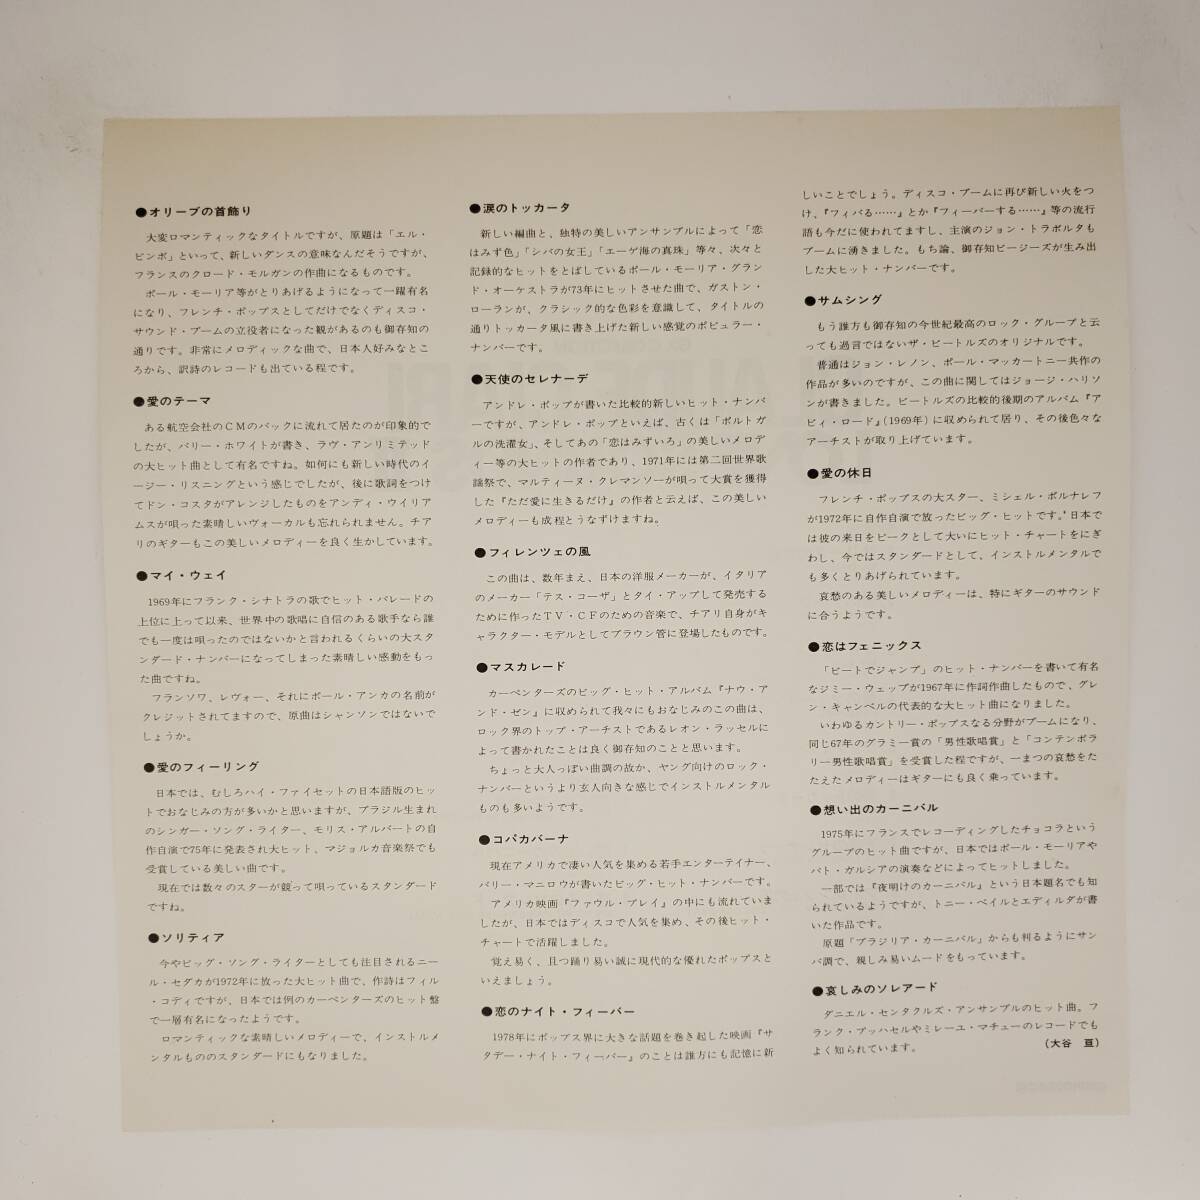 ●オリーブの首飾り
大変ロマンティックなタイトルですが、原題は「エル・
ビンボ」といって、新しいダンスの意味なんだそうですが、
フランスのクロード・モルガンの作曲になるものです。
ポール・モーリア等がとりあげるようになって一躍有名
になり、フレンチ・ポップスとしてだけでなくディスコ・
サウンド・ブームの立役者になった観があるのも御存知の
通りです。非常にメロディックな曲で、日本人好みなとこ
ろから、訳詩のレコードも出ている程です。
●愛のテーマ
ある航空会社のCMのバックに流れて居たのが印象的で
したが、バリー・ホワイトが書き、ラヴ・アンリミテッド
の大ヒット曲として有名ですね。如何にも新しい時代のイ
ージー・リスニングという感じでしたが、後に歌詞をつけ
てドン・コスタがアレンジしたものをアンディ・ウイリア
ムスが唄った素晴しいヴォーカルも忘れられません。チア
リのギターもこの美しいメロディーを良く生かしています。
●マイ・ウェイ
1969年にフランク・シナトラの歌でヒット・パレードの
上位に上って以来、世界中の歌唱に自信のある歌手なら誰
でも一度は唄ったのではないかと言われるくらいの大スタ
ンダード・ナンバーになってしまった素晴しい感動をもっ
た曲ですね。
フランソワ、レヴォー、それにポール・アンカの名前が
クレジットされてますので、原曲はシャンソンではないで
しょうか。
●愛のフィーリング
日本では、むしろハイ・ファイセットの日本語版のヒッ
トでおなじみの方が多いかと思いますが、ブラジル生まれ
のシンガー・ソング・ライター、モリス・アルバートの自
作自演で75年に発表され大ヒット、マジョルカ音楽祭でも
受賞している美しい曲です。
現在では数々のスターが競って唄っているスタンダード
ですね。
●ソリティア
今やビッグ・ソング・ライターとしても注目されるニー
ル・セダカが1972年に放った大ヒット曲で、作詩はフィル
・コディですが、日本では例のカーペンターズのヒット盤
で一層有名になったようです。
ロマンティックな素晴しいメロディーで、インストルメ
ンタルもののスタンダードにもなりました。
●涙のトッカータ
新しい編曲と、独特の美しいアンサンブルによって「恋
はみず色」「シバの女王」「エーゲ海の真珠」等々、次々と
記録的なヒットをとばしているポール・モーリア・グラン
ド・オーケストラが73年にヒットさせた曲で、ガストン・
ローランが、クラシック的な色彩を意識して、タイトルの
通りトッカータ風に書き上げた新しい感覚のポピュラー・
ナンバーです。
●天使のセレナーデ
アンドレ・ポップが書いた比較的新しいヒット・ナンバ
ーですが、アンドレ・ポップといえば、古くは「ポルトガ
ルの洗濯女」、そしてあの「恋はみずいろ」の美しいメロデ
ィー等の大ヒットの作者であり、1971年には第二回世界歌
謡祭で、マルティーヌ・クレマンソーが唄って大賞を獲得
した『ただ愛に生きるだけ』の作者と云えば、この美しい
メロディーも成程とうなずけますね。
●フィレンツェの風
この曲は、数年まえ、日本の洋服メーカーが、イタリア
のメーカー「テス・コーザ」とタイ・アップして発売する
ために作ったTV・CFのための音楽で、チアリ自身がキ
ャラクター・モデルとしてブラウン管に登場したものです。
●マスカレード
カーペンターズのビッグ・ヒット・アルバム『ナウ・ア
ンド・ゼン』に収められて我々にもおなじみのこの曲は、
ロック界のトップ・アーチストであるレオン・ラッセルに
よって書かれたことは良く御存知のことと思います。
ちょっと大人っぽい曲調の故か、ヤング向けのロック・
ナンバーというより玄人向きな感じでインストルメンタル
ものも多いようです。
●コパカバーナ
現在アメリカで凄い人気を集める若手エンターテイナー、
バリー・マニロウが書いたビッグ・ヒット・ナンバーです。
アメリカ映画『ファウル・プレイ』の中にも流れていま
したが、日本ではディスコで人気を集め、その後ヒット・
チャートで活躍しました。
覚え易く、且つ踊り易い誠に現代的な優れたポップスと
いえましょう。
●恋のナイト・フィーバー
1978年にポップス界に大きな話題を巻き起した映画『サ
タデー・ナイト・フィーバー』のことは誰方にも記憶に新
しいことでしょう。ディスコ・ブームに再び新しい火をつ
け、『フィバる……』とか『フィーバーする……』等の流行
語も今だに使われてますし、主演のジョン・トラボルタも
ブームに湧きました。もち論、御存知ビージーズが生み出
した大ヒット・ナンバーです。
●サムシング
もう誰方も御存知の今世紀最高のロック・グループと云
っても過言ではないザ・ビートルズのオリジナルです。
普通はジョン・レノン、ポール・マッカートニー共作の
作品が多いのですが、この曲に関してはジョージ・ハリソ
ンが書きました。ビートルズの比較的後期のアルバム『ア
ビィ・ロード』(1969年)に収められて居り、その後色々な
アーチストが取り上げています。
●愛の休日
フレンチ・ポップスの大スター、ミシェル・ポルナレフ
が1972年に自作自演で放ったビッグ・ヒットです。日本で
は彼の来日をピークとして大いにヒット・チャートをにぎ
わし、今ではスタンダードとして、インストルメンタルで
も多くとりあげられています。
哀愁のある美しいメロディーは、特にギターのサウンド
に合うようです。
●恋はフェニックス
「ビートでジャンプ」のヒット・ナンバーを書いて有名
なジミー・ウェッブが1967年に作詞作曲したもので、グレ
ン・キャンベルの代表的な大ヒット曲になりました。
いわゆるカントリー・ポップスなる分野がブームになり、
同じ67年のグラミー賞の「男性歌唱賞」と「コンテンポラ
リー男性歌唱賞」を受賞した程ですが、一まつの哀愁をた
たえたメロディーはギターにも良く乗っています。
●想い出のカーニバル
1975年にフランスでレコーディングしたチョコラという
グループのヒット曲ですが、日本ではポール・モーリアや
パト・ガルシアの演奏などによってヒットしました。
一部では『夜明けのカーニバル』という日本題名でも知
られているようですが、トニー・ベイルとエディルダが書
いた作品です。
原題「ブラジリア・カーニバル」からも判るようにサン
バ調で、親しみ易いムードをもっています。
●哀しみのソレアード
ダニエル・センタクルズ・アンサンブルのヒット曲。フ
ランク・プッハセルやミレーユ・マチューのレコードでも
よく知られています。
(大谷 亘)